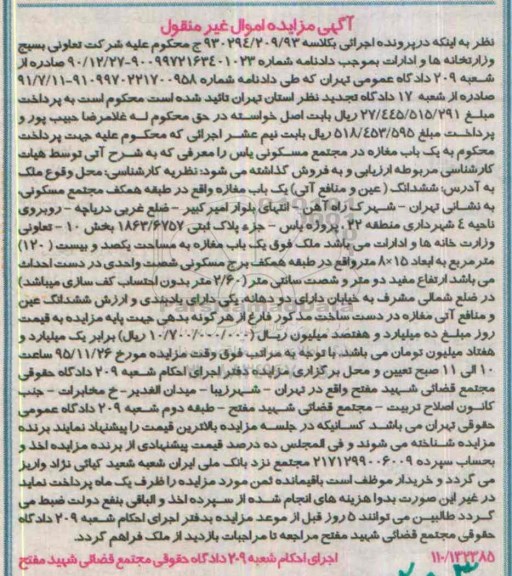 آگهی مزایده اموال غیر منقول
نظر به اینکه در پرونده اجرائی بکلاسه ۹۳۰۲۹۴/۲۰۹/۹۳ ج محکوم علیه شرکت تعاونی بسیج
وزارتخانه ها و ادارات بموجب دادنامه شماره ۹۰۰۹۹۷۲۱۶۳۴۰۱۰۲۳-۹۰/۱۲/۲۷ صادره از
شعبه ۲۰۹ دادگاه عمومی تهران که طی دادنامه شماره ۹۱۰۹۹۷۰۲۲۱۷۰۰۹۵۸-۹۱/۷/۱۱
صادره از شعبه ۱۷ دادگاه تجدید نظر استان تهران تائید شده است محکوم است به پرداخت
مبلغ ۲۷/۴۴۵/۵۱۵/۲۹۱ ریال بابت اصل خواسته در حق محکوم له غلامرضا حبیب پور و
پرداخت مبلغ ۵۱۸/۴۵۳/۵۹۵ ریال بابت نیم عشر اجرائی که محکوم علیه جهت پرداخت
محکوم به یک باب مغازه در مجتمع مسکونی یاس را معرفی که به شرح آتی توسط هیات
کارشناسی مربوطه ارزیابی و به فروش گذاشته می شود: نظریه کارشناسی: محل وقوع ملک
به آدرس: ششدانگ (عین و منافع آتی) یک باب مغازه واقع در طبقه همکف مجتمع مسکونی
به نشانی تهران – شهرک راه آهن – انتهای بلوار امیرکبیر – ضلع غربی دریاچه – روبروی
ناحیه ۴ شهرداری منطقه ۲۲- پروژه یاس – جزء پلاک ثبتی ۱۸۶۳/۶۷۵۷ بخش ۱۰ – تعاونی
وزارت خانه ها و ادارات می باشد. ملک فوق یک باب مغازه به مساحت یکصد و بیست (۱۲۰)
متر مربع به ابعاد ۱۵×۸ متر واقع در طبقه همکف برج مسکونی شصت واحدی در دست احداث
می باشد ارتفاع مفید دو متر و شصت سانتی متر (۲/۶۰ متر بدون احتساب کف سازی میباشد)
در ضلع شمالی مشرف به خیابان دارای دو دهانه، یکی دارای یادبندی و ارزش ششدانگ عین
و منافع آتی مغازه در دست ساخت مذکور فارغ از هر گونه بدهی جهت پایه مزایده به قیمت
روز مبلغ ده میلیارد و هفتصد میلیون ریال (۱۰/۷۰۰/۰۰۰/۰۰۰ ریال) برابر یک میلیارد و
هفتاد میلیون تومان می باشد. با توجه به مراتب فوق وقت مزایده مورخ ۹۵/۱۱/۲۶ ساعت
۱۰ الی ۱۱ صبح تعیین و محل برگزاری مزایده دفتر اجرای احکام شعبه ۲۰۹ دادگاه حقوقی
مجتمع قضائی شهید مفتح واقع در تهران – شهرزیبا – میدان الغدیر – خ مخابرات – جنب
کانون اصلاح تربیت – مجتمع قضائی شهید مفتح – طبقه دوم شعبه ۲۰۹ دادگاه عمومی
حقوقی تهران می باشد. کسانیکه در جلسه مزایده بالاترین قیمت را پیشنهاد نمایند برنده
مزایده شناخته می شوند و فی المجلس ده درصد قیمت پیشنهادی از برنده مزایده اخذ و
بحساب سپرده ۲۱۷۱۲۹۹۰۰۶۰۰۹ مجتمع نزد بانک ملی ایران شعبه شعید کیائی نژاد واریز
می گردد و خریدار موظف است باقیمانده ثمن مورد مزایده را ظرف یک ماه پرداخت نماید
در غیر این صورت بدوا هزینه های انجام شده از سپرده اخذ و الباقی بنفع دولت ضبط می
گردد طالبین می توانند ۵ روز قبل از موعد مزایده بدفتر اجرای احکام شعبه ۲۰۹ دادگاه
حقوقی مجتمع قضائی شهید مفتح مراجعه تا مراجبات بازدید از ملک فراهم گردد.
۱۱۰/۱۴۲۳۸۵ اجرای احکام شعبه ۲۰۹ دادگاه حقوقی مجتمع قضائی شهید مفتح